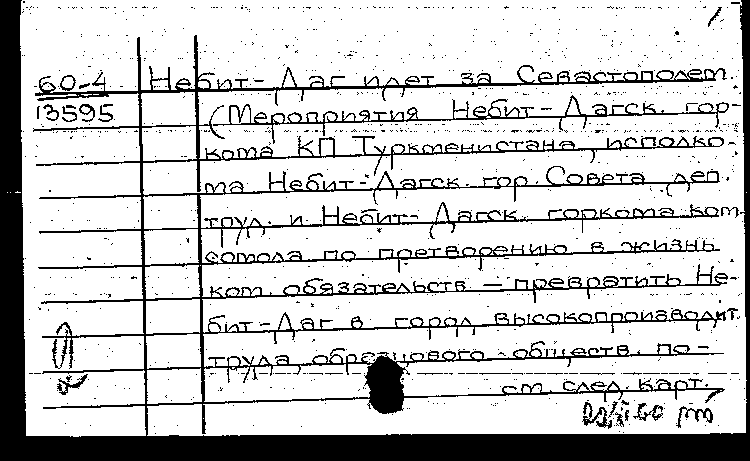 60-4 Небит-Даг идет за Севастополем.
13595 (Мероприятия Небит-Дагск. гор-
кома КП Туркменистана, исполко-
ма Небит-Дагск. гор. Совета деп.
труд. и Небит-Дагск. горкома ком-
сомола по претворению в жизнь
ком. обязательств — превратить Не-
бит-Даг в город высокопроизводит.
труда, образцового обществ. по-
см. след. карт.